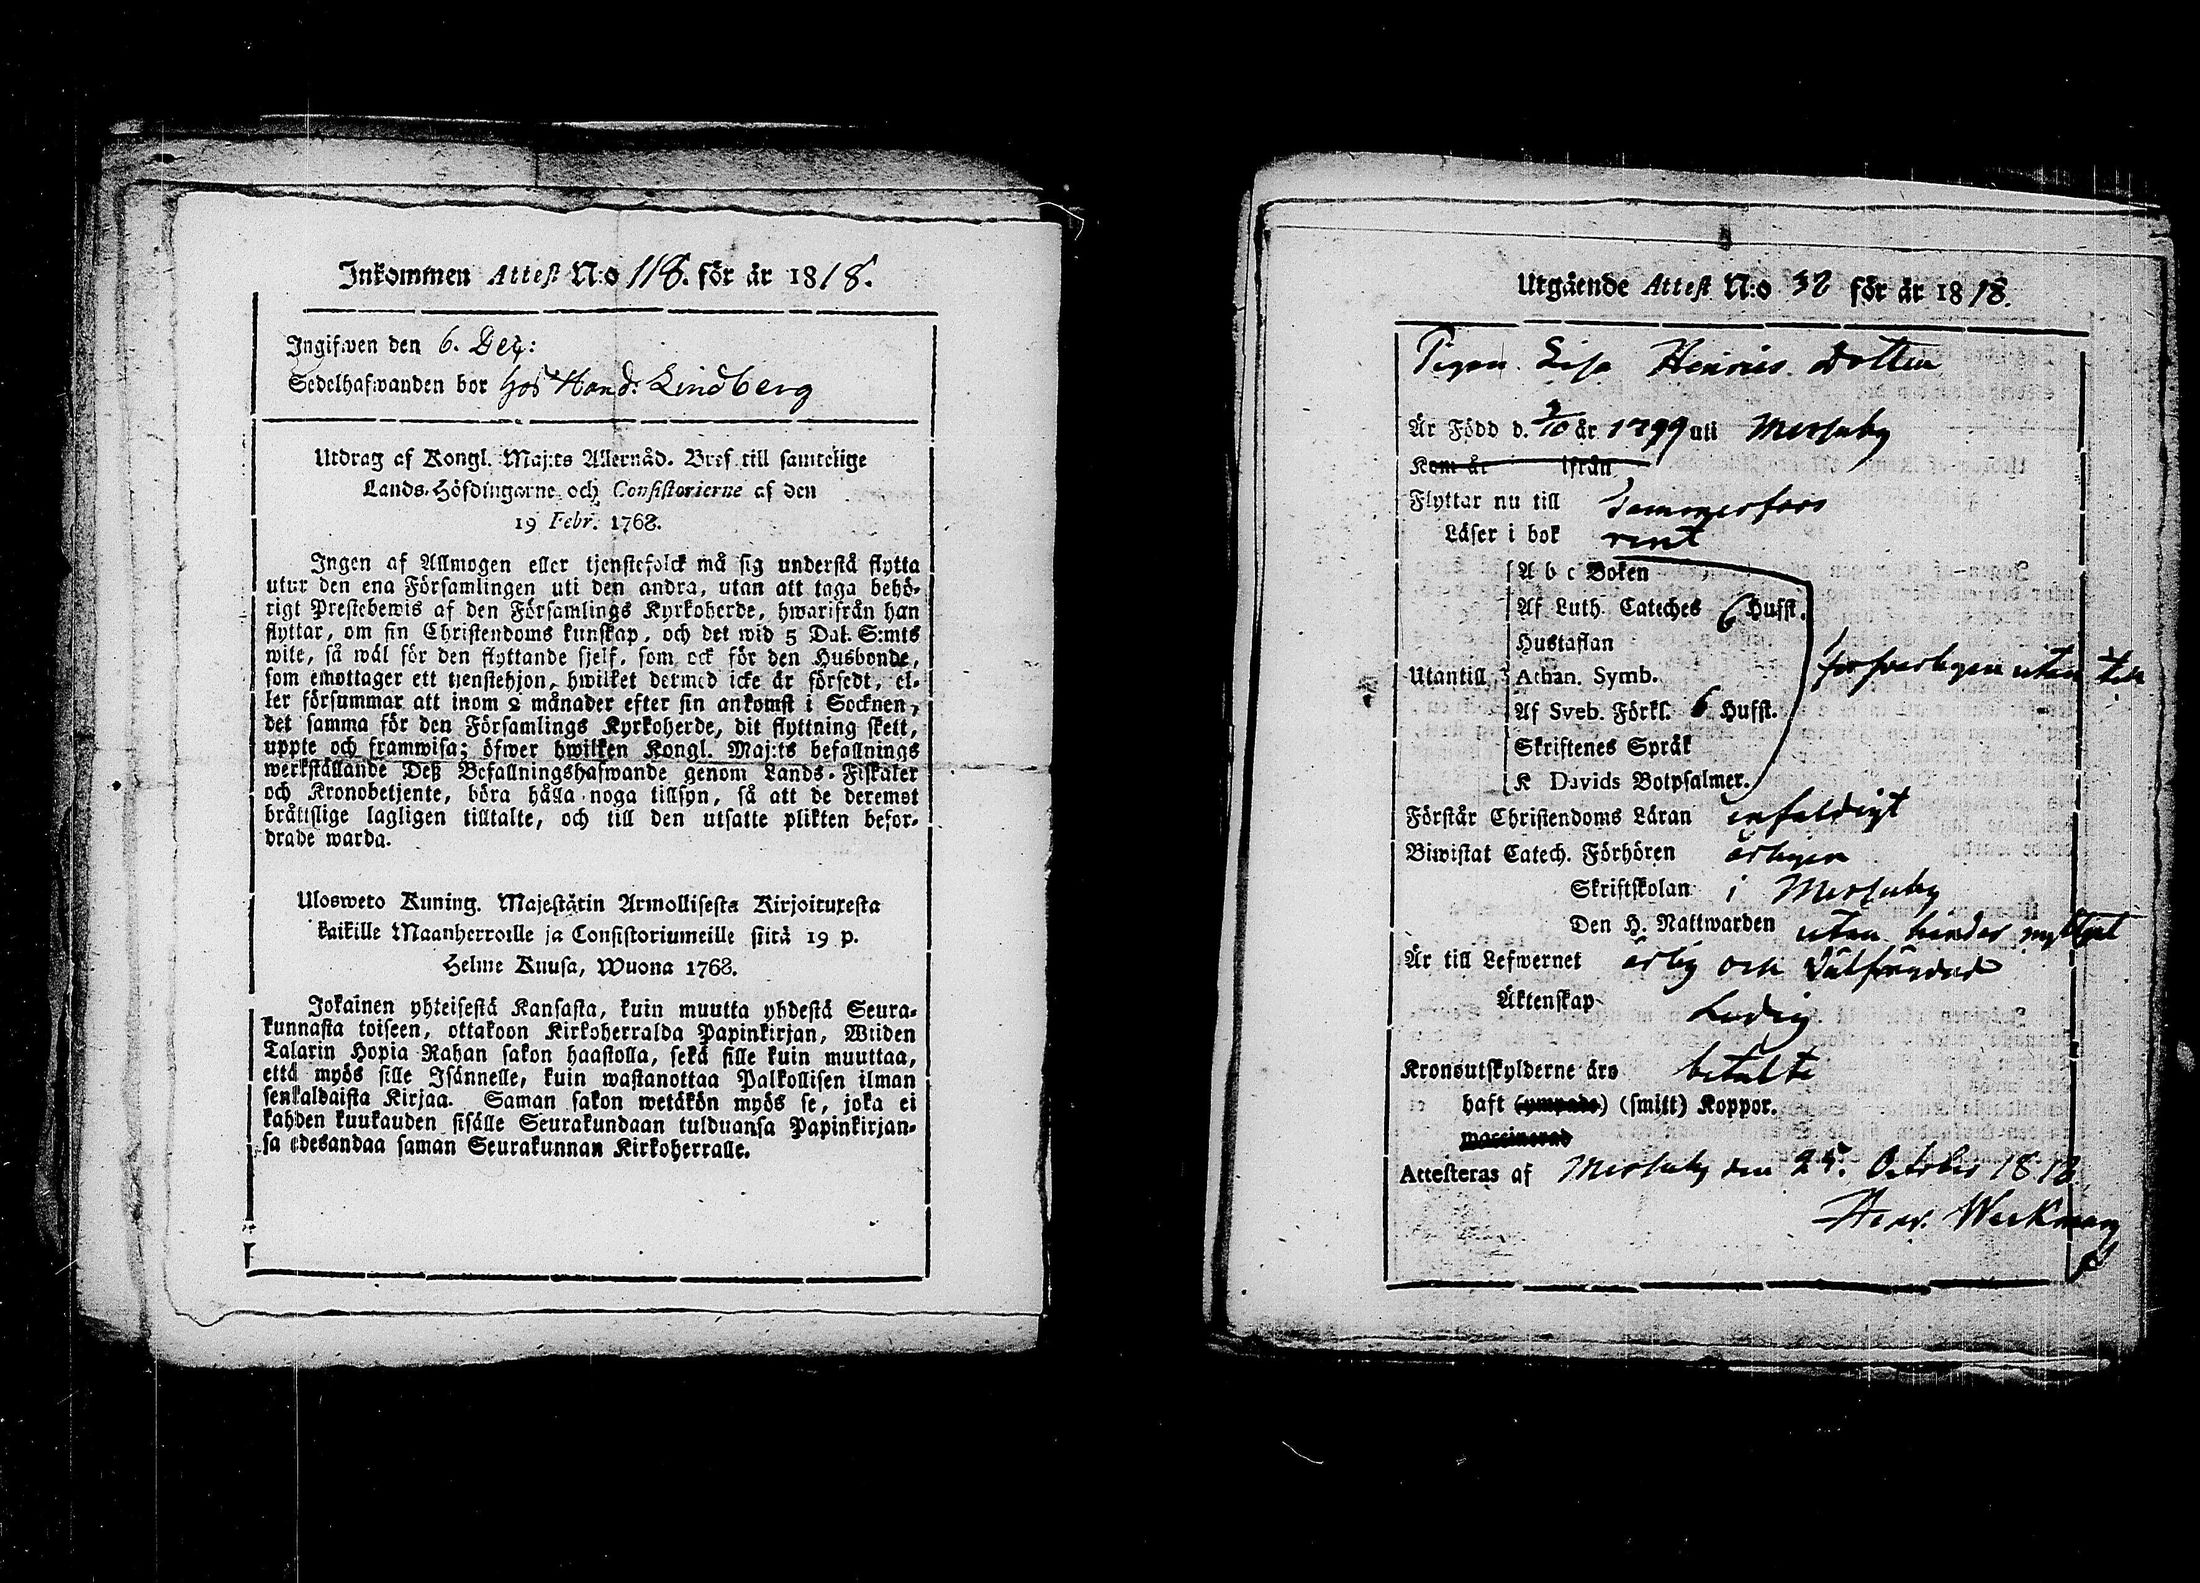 Inkommen Attest N:o 118. för år 1818.
Ingifwen den 6. Dec:
Sedelhafwanden bor hos Hand: Lindberg
Utdrag af Kongl. Maj:ts Allernåd. Bref till samtelige
Lands-Höfdingarne och Consistorierne af den
19 Febr. 1768.
Ingen af Allmogen eller tjenstefolck må sig understå flytta
utur den ena Församlingen uti den andra, utan att taga behö-
rigt Prestebewis af den Församlings Kyrkoherde, hwarifrån han
flyttar, om sin Christendoms kunskap, och det wid 5 Dal. S:mts
wite, så wäl för den flyttande sjelf, som ock för den Husbonde,
som emottager ett tjenstehjon, hwilket dermed icke är försedt, el-
ler försummar att inom 2 månader efter sin ankomst i Socknen,
det samma för den Församlings Kyrkoherde, dit flyttning skett,
uppte och framwisa; öfwer hwilken Kongl. Maj:ts befallnings
werkställande Deß Befallningshafwande genom Lands-Fiskaler
och Kronobetjente, böra hålla noga tillsyn, så att de deremot
bråttslige lagligen tilltalte, och till den utsatte plikten befor-
drade warda.
Ulosweto Kuning. Majestätin Armollisesta Kirjoituxesta
kaikille Maanherroille ja Consistoriumeille siitä 19 p.
Helme Kuusa, Wuona 1768.
Jokainen yhteisestä Kansasta, kuin muutta yhdestä Seura-
kunnasta toiseen, ottakoon Kirkoherralda Papinkirjan, Wiiden
Talarin Hopia Rahan sakon haastolla, sekä sille kuin muuttaa,
että myös sille Isännelle, kuin wastanottaa Palkollisen ilman
senkaldaista Kirjaa. Saman sakon wetäkön myös se, joka ei
kahden kuukauden sisälle Seurakundaan tulduansa Papinkirjan-
sa edesandaa saman Seurakunnan Kirkoherralle.
Utgående Attest N:o 32 för år 1818.
Pigan Lisa Henrics Dotter
Är Född d. 9/10 år 1799 uti Messuby
Kom år ifrån
Flyttar nu till Tammerfors
Läser i bok rent
A b c Boken
Af Luth. Cateches 6 Hufst.
Hustaflan
Utantill Athan. Symb. försvarligen utan till
Af Sveb. Förkl. 6 Hufst.
Skriftenes Språk
K Davids Botpsalmer.
Förstår Christendoms Läran enfaldigt
Biwistat Catech. Förhören årligen
Skriftskolan i Messuby
Den H. Nattwarden utan hinder nyttjat
Är till Lefwernet ärlig och välfrägdad
Äktenskap Ledig
Kronoutskylderne äro betalte
haft (ympade) (smitt) Koppor.
waccinerad
Attesteras af Messuby den 25. October 1818
Henr. Weckman